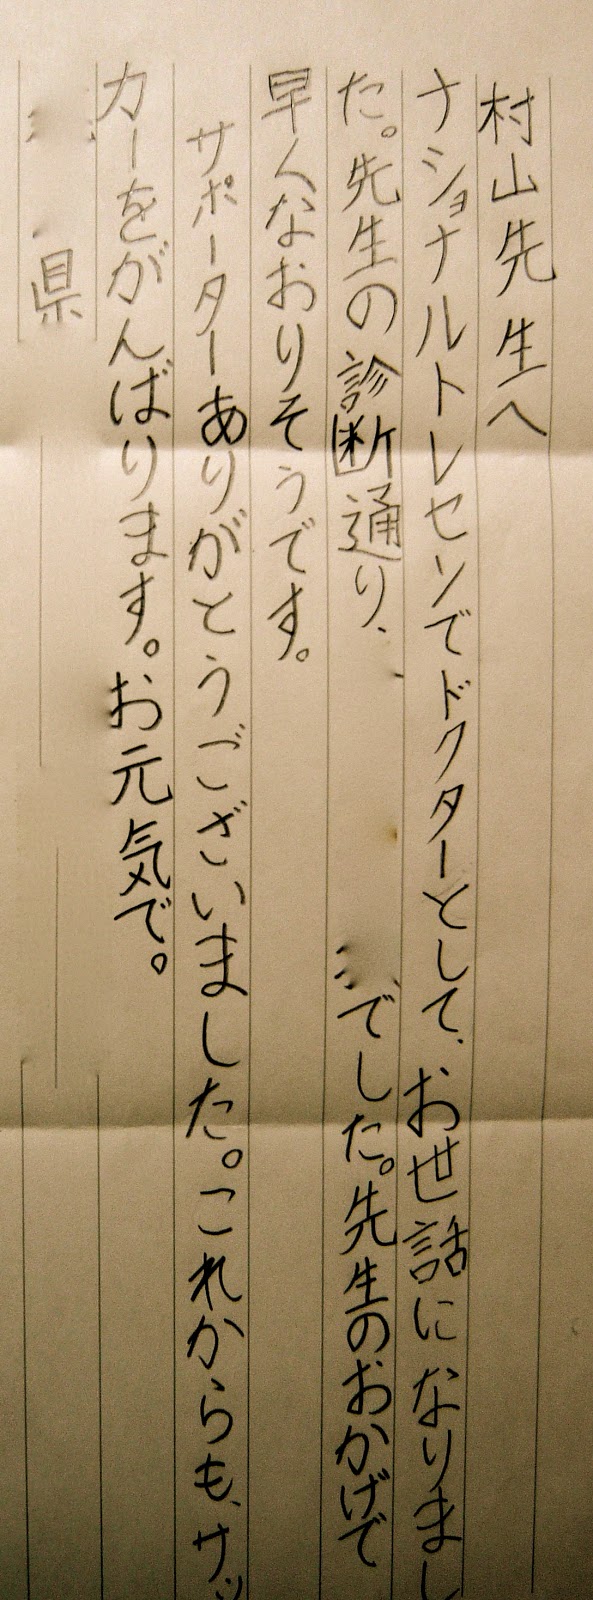 村山先生へ
ナショナルトレセンでドクターとして、お世話になりまし
た。先生の診断通り、でした。先生のおかげで
早くなおりそうです。
サポーターありがとうございました。これからも、サッ
カーをがんばります。お元気で。
県